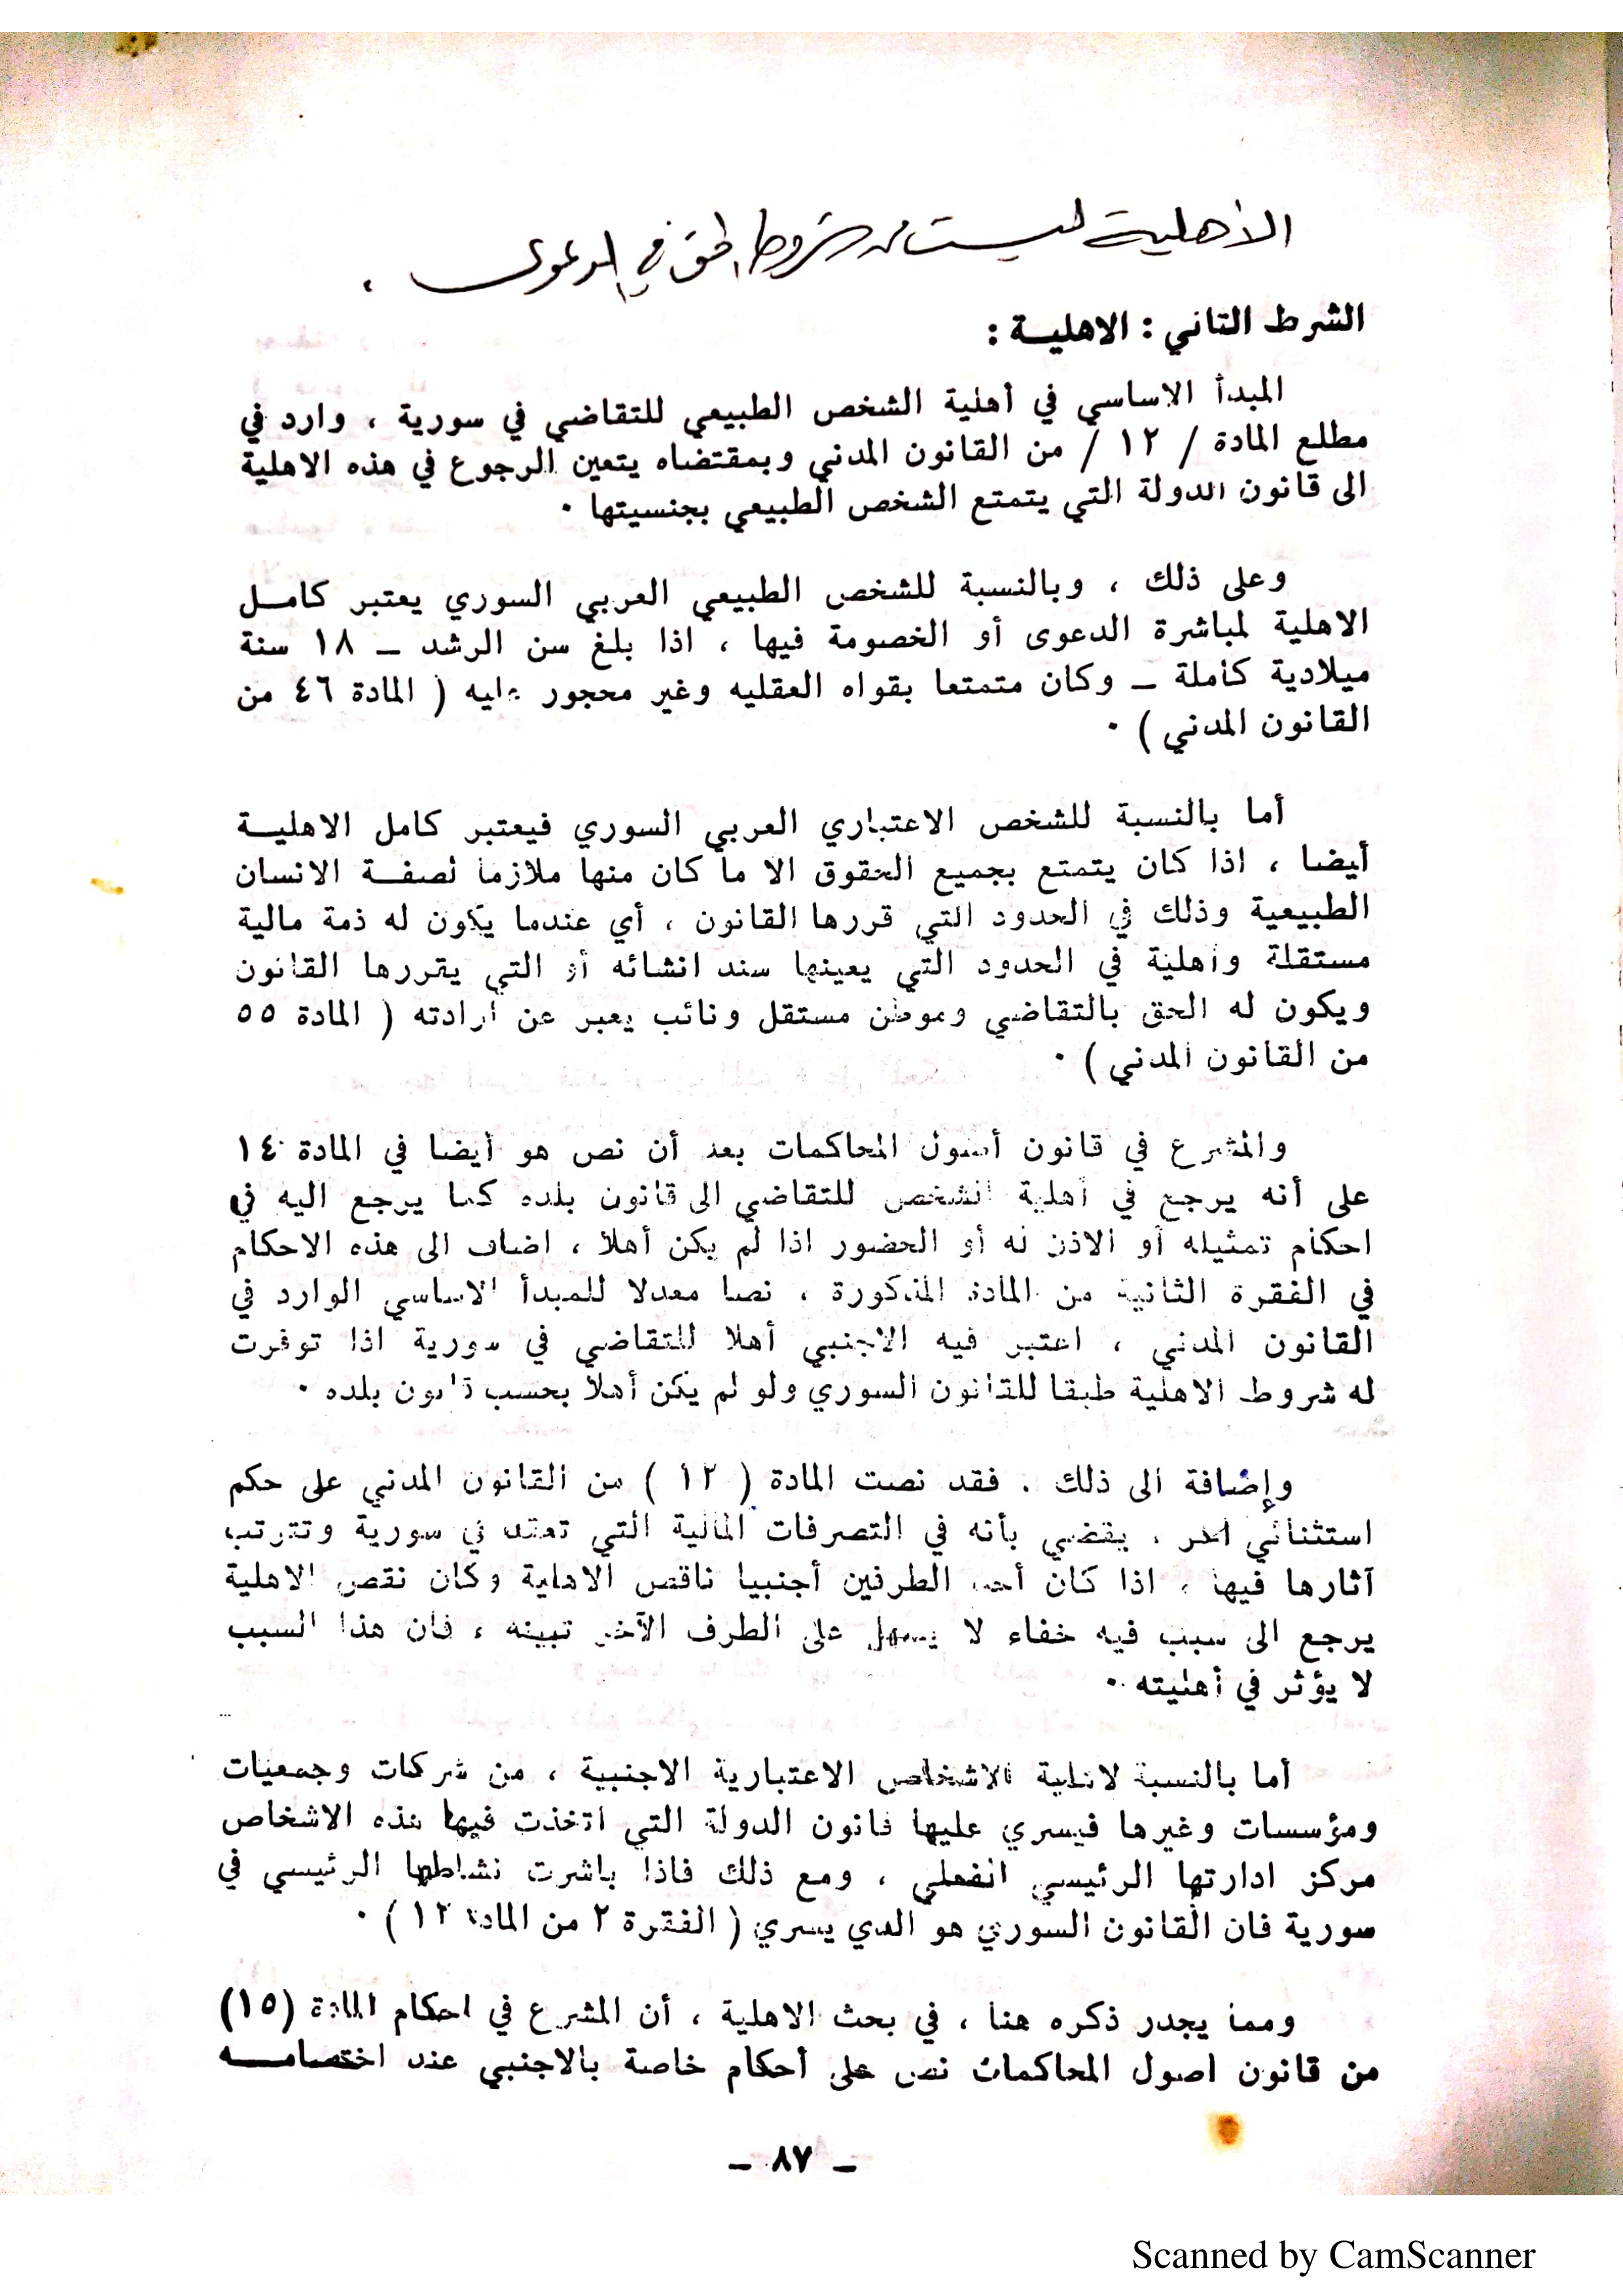 الأهلية ليست من شروط الحق في الدعوى .
الشرط الثاني : الاهليــة :
المبدأ الاساسي في أهلية الشخص الطبيعي للتقاضي في سورية ، وارد في
مطلع المادة / ١٢ / من القانون المدني وبمقتضاه يتعين الرجوع في هذه الاهلية
الى قانون الدولة التي يتمتع الشخص الطبيعي بجنسيتها ٠
وعلى ذلك ، وبالنسبة للشخص الطبيعي العربي السوري يعتبر كامــل
الاهلية لمباشرة الدعوى أو الخصومة فيها ، اذا بلغ سن الرشد ــ ١٨ سنة
ميلادية كاملة ــ وكان متمتعا بقواه العقليه وغير محجور عليه ( المادة ٤٦ من
القانون المدني ) ٠
أما بالنسبة للشخص الاعتباري العربي السوري فيعتبر كامل الاهليــة
أيضا ، اذا كان يتمتع بجميع الحقوق الا ما كان منها ملازما لصفــة الانسان
الطبيعية وذلك في الحدود التي قررها القانون ، أي عندما يكون له ذمة مالية
مستقلة وأهلية في الحدود التي يعينها سند انشائه أو التي يقررها القانون
ويكون له الحق بالتقاضي وموطن مستقل ونائب يعبر عن ارادته ( المادة ٥٥
من القانون المدني ) ٠
والمشرع في قانون أصول المحاكمات بعد أن نص هو أيضا في المادة ١٤
على أنه يرجع في أهلية الشخص للتقاضي الى قانون بلده كما يرجع اليه في
احكام تمثيله أو الاذن له أو الحضور اذا لم يكن أهلا ، اضاف الى هذه الاحكام
في الفقرة الثانية من المادة المذكورة ، نصا معدلا للمبدأ الاساسي الوارد في
القانون المدني ، اعتبر فيه الاجنبي أهلا للتقاضي في سورية اذا توفرت
له شروط الاهلية طبقا للقانون السوري ولو لم يكن أهلا بحسب قانون بلده ٠
وإضافة الى ذلك . فقد نصت المادة ( ١٢ ) من القانون المدني على حكم
استثنائي آخر ، يقضي بأنه في التصرفات المالية التي تعقد في سورية وتترتب
آثارها فيها ، اذا كان أحد الطرفين أجنبيا ناقص الاهلية وكان نقص الاهلية
يرجع الى سبب فيه خفاء لا يسهل على الطرف الآخر تبينه ، فان هذا السبب
لا يؤثر في أهليته ٠
أما بالنسبة لاهلية الاشخاص الاعتبارية الاجنبية ، من شركات وجمعيات
ومؤسسات وغيرها فيسري عليها قانون الدولة التي اتخذت فيها هذه الاشخاص
مركز ادارتها الرئيسي الفعلي ، ومع ذلك فاذا باشرت نشاطها الرئيسي في
سورية فان القانون السوري هو الذي يسري ( الفقرة ٢ من المادة ١٢ ) ٠
ومما يجدر ذكره هنا ، في بحث الاهلية ، أن المشرع في احكام المادة (١٥)
من قانون اصول المحاكمات نص على أحكام خاصة بالاجنبي عند اختصامــه
ــ ٨٧ ــ
Scanned by CamScanner